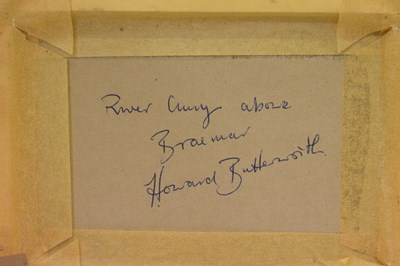 River Cluny above
Braemar
Howard Butterworth